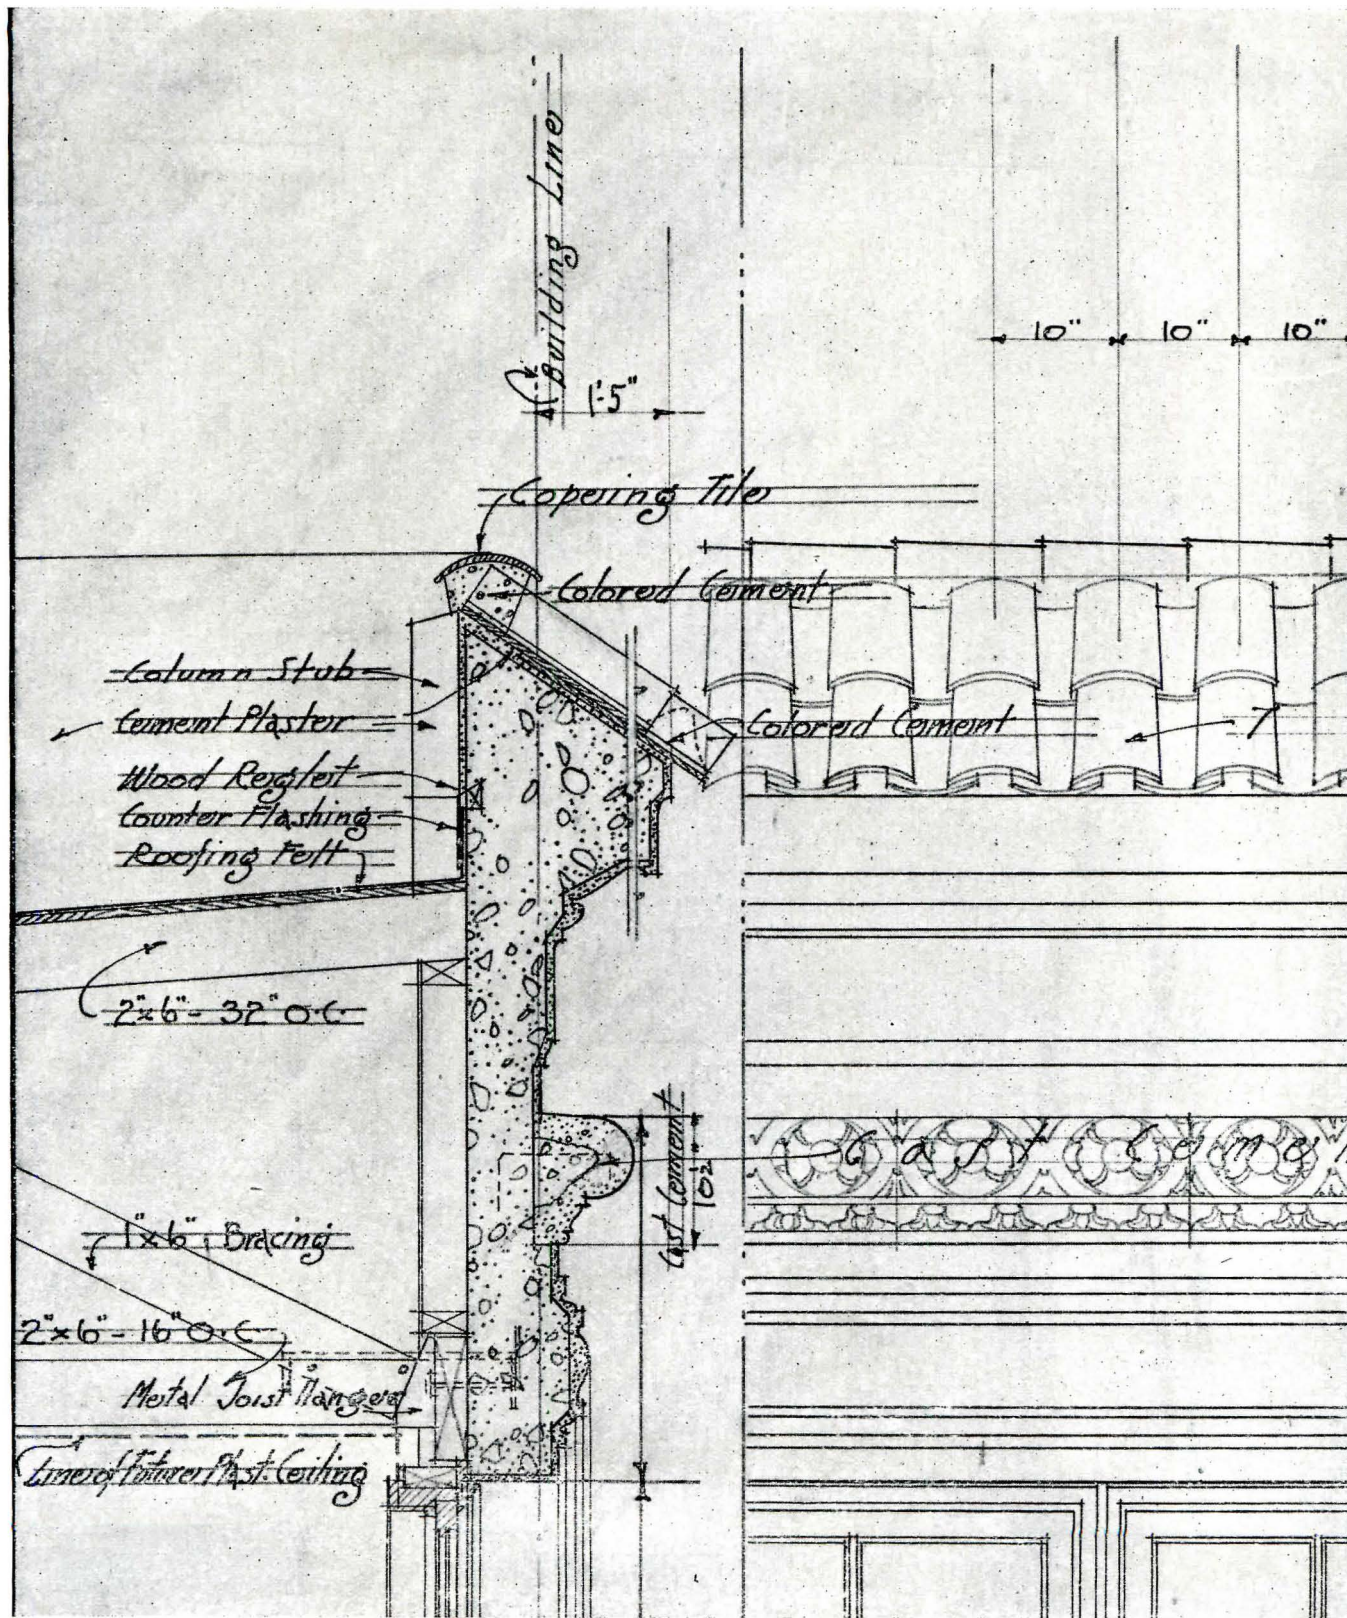 Building Line
10" 10" 10"
1'-5"
Copeing Tile
Colored Cement
Column Stub
Cement Plaster
Colored Cement
T
Wood Reglet
Counter Flashing
Roofing Felt
2"x6"- 32" O.C.
Cast Cement
10½"
Cast Cemen
1"x6" Bracing
2"x6"- 16" O.C.
Metal Joist Hanger
Line of Future Plast. Ceiling